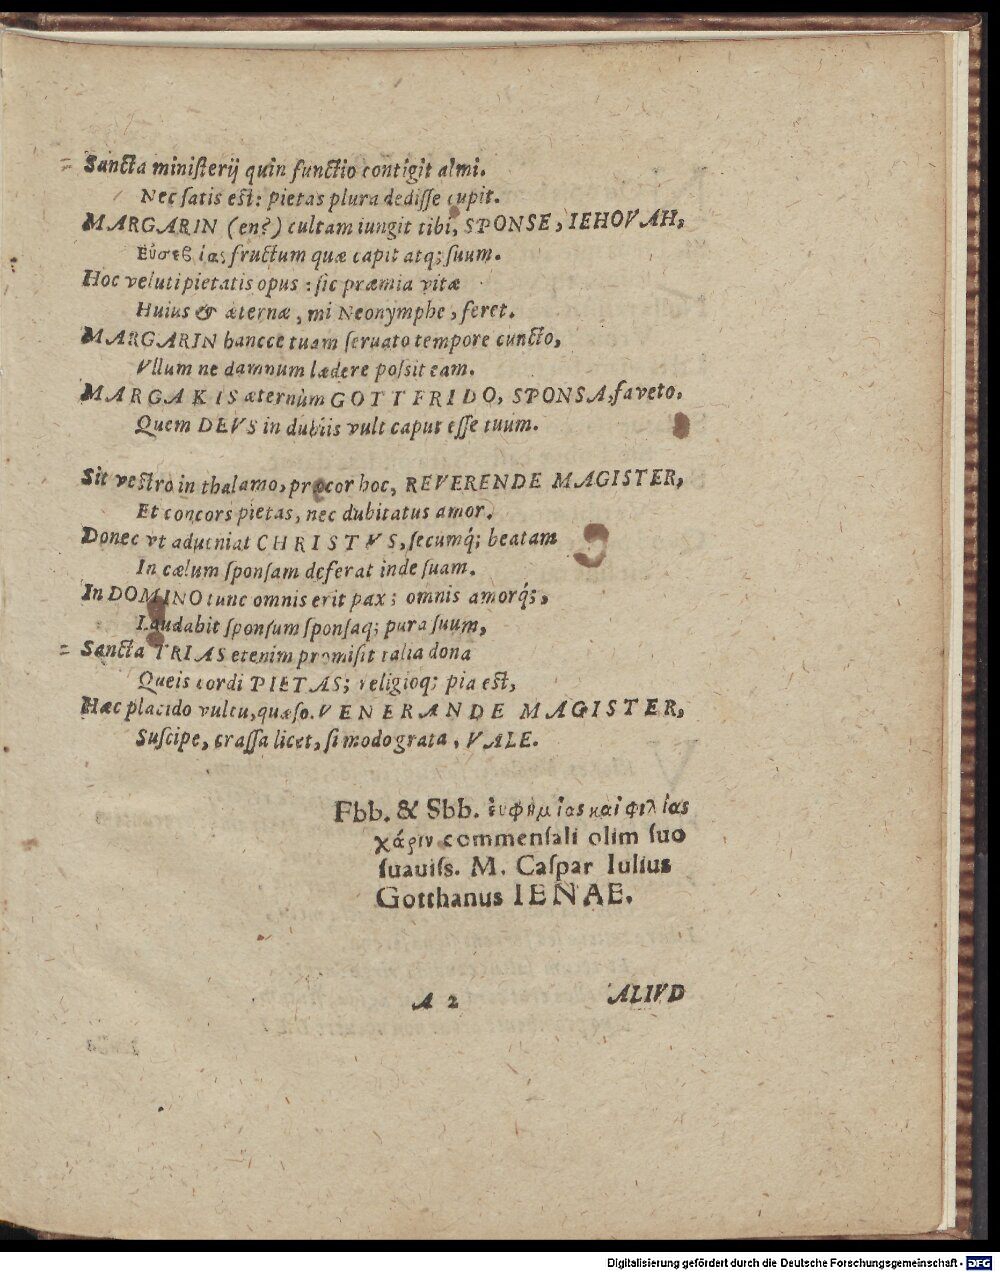 = Sancta ministerij quin functio contigit almi.
Nec satis est: pietas plura dedisse cupit.
MARGARIN (en?) cultam iungit tibi, SPONSE, IEHOVAH,
Εὐσεβίας fructum quæ capit atq; suum.
Hoc veluti pietatis opus: sic præmia vitæ
Huius & æternæ, mi Neonymphe, feret.
MARGARIN hancce tuam seruato tempore cuncto,
Vllum ne damnum lædere possit eam.
MARGARIS æternùm GOTTFRIDO, SPONSA, faveto,
Quem DEVS in dubiis vult caput esse tuum.
Sit vestro in thalamo, precor hoc, REVERENDE MAGISTER,
Et concors pietas, nec dubitatus amor.
Donec vt adueniat CHRISTVS, secumq́; beatam
In cælum sponsam deferat inde suam.
In DOMINO tunc omnis erit pax; omnis amorq́;,
Laudabit sponsum sponsaq; pura suum,
= Sancta TRIAS etenim promisit talia dona
Queis cordi PIETAS; religioq; pia est,
Hæc placido vultu, quæso. VENERANDE MAGISTER,
Suscipe, crassa licet, si modo grata, VALE.
Fbb. & Sbb. ἐυφημίας καὶ φιλίας
χάριν commensali olim suo
suauiss. M. Caspar Iulius
Gotthanus IENAE.
A 2 ALIVD
Digitalisierung gefördert durch die Deutsche Forschungsgemeinschaft - DFG